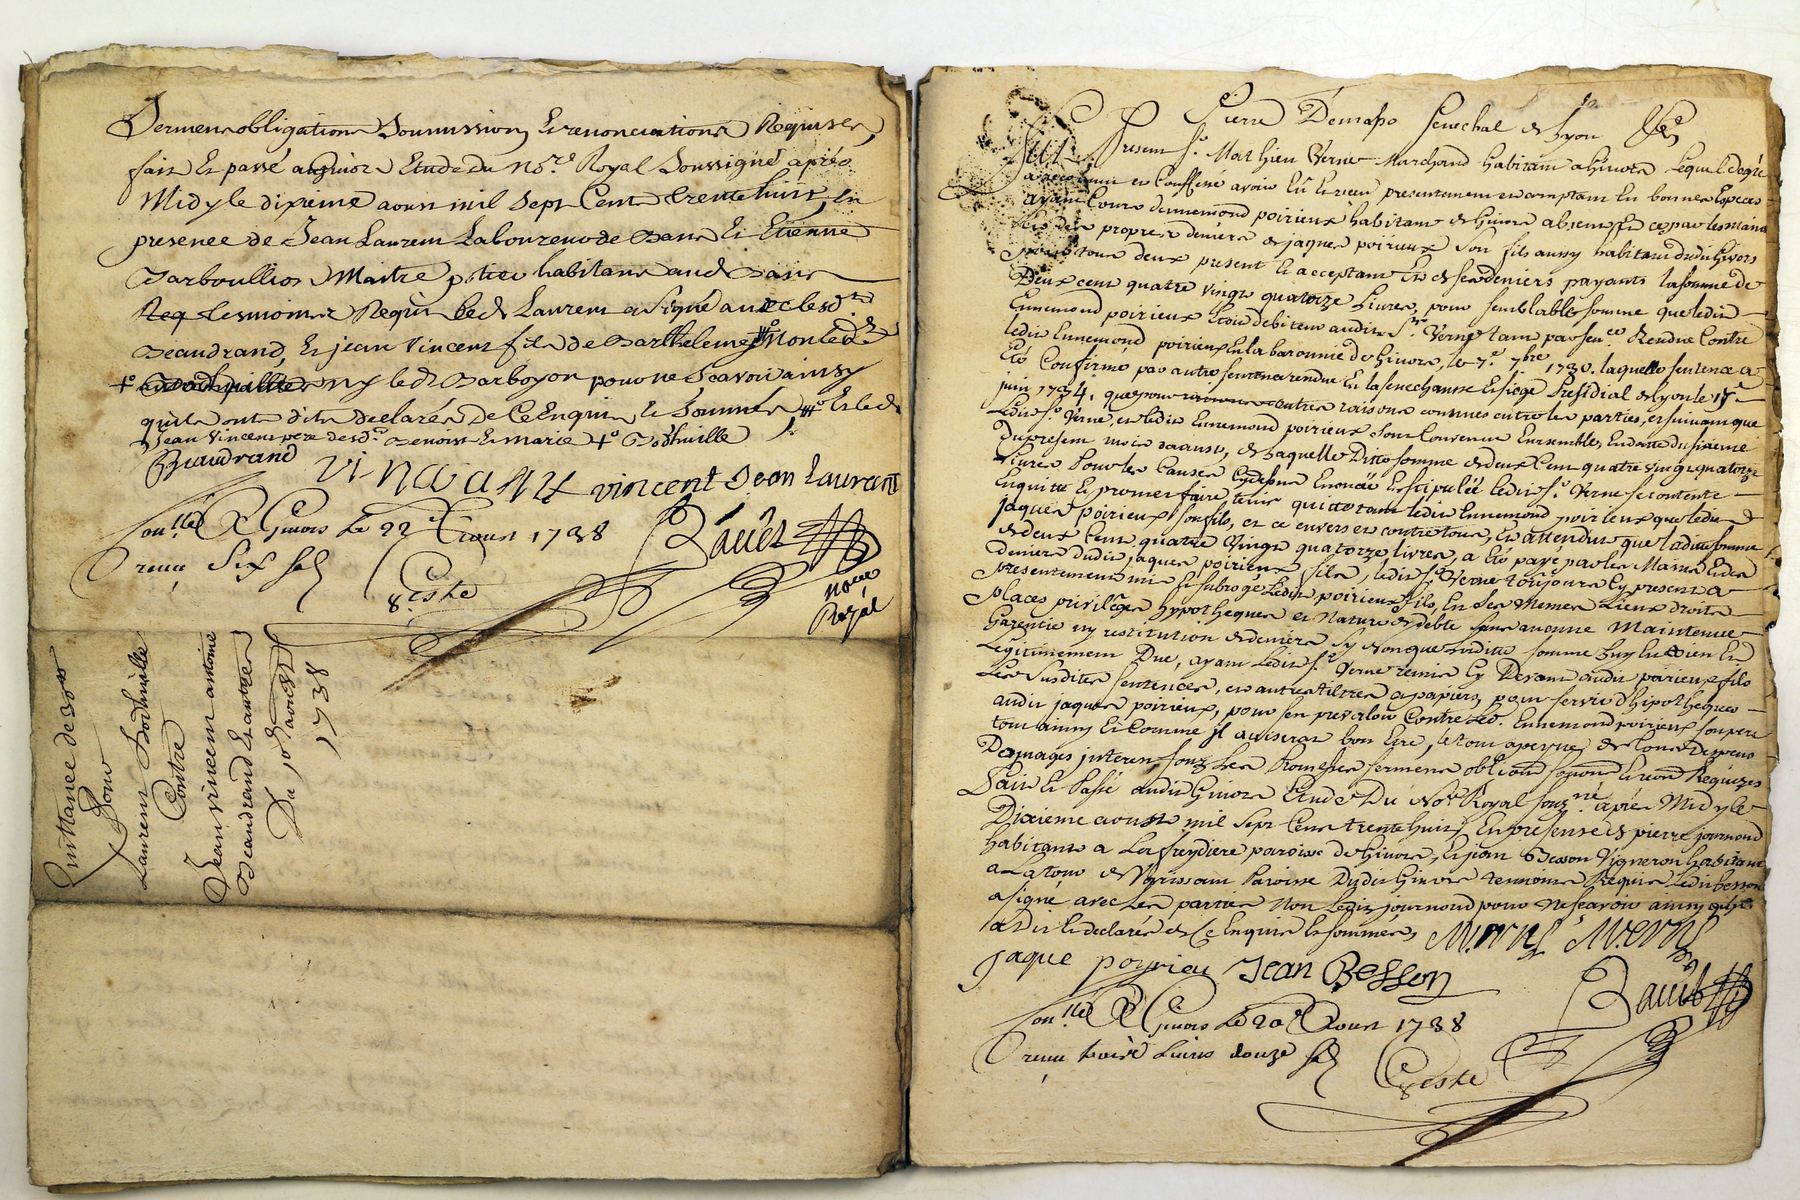 Sermens obligations soumissions et renonciations Requises
fait et passé a givors Etude du No.re Royal soussigné après
Midy le dixieme aoust mil sept Cent trente huit, En
presence de Jean Laurent Laboureur de Bans Et Etienne
Barboullion Maitre habitans aud Bans
temoins Requis led Laurent a signé avec lesd.ts
Beaudrand, Et jean Vincent fils de Barthelemy
ny led Barboyon pour ne sçavoir ainsy
quils ont dit et declarés de Ce Enquis Et Sommés Et led
Jean Vincent pere desd. Benoist Et marie Bodhuille
Beaudrand vincent Jean Laurent
Con.llé A Givors Le 22e Aoust 1738
receu Six sols
Geste
Bauët
no.re
Royal
Quittance de 30
Pour
Laurent Bodhuille
Contre
Jean vincent antoine
Beaudrand Et autres
Du 10e aoust
1738
Pierre Demasso Senechal de Lyon
fut Present S.r Mathieu Verne Marchand habitant a Givors Lequel de gré
a reconnu et Confessé avoir Eû Et receu presentement et comptant En bonnes Especes
ayant Cours dennemond poirieux habitant de Givors absent Et ce par les mains
Et des propres deniers de jaques poirieux son fils aussy habitant dudit Givors
tous deux present Et acceptant Et de ses deniers payants la somme de
Deux cent quatre vingt quatorze Livres, pour semblable somme que ledit
Ennemond poirieux Etoit debiteur audit S.r Verne tant par sen.ce Rendue Contre
ledit Ennemond poirieux En la baronnie de Givors, le 7.e 7bre 1730. laquelle sentence a
Eté Confirmé par autre sentence rendue En la senechaussé Et siege Presidial de Lyon le 17e
juin 1734, que pour autres raisons connues entre les parties, et suivant que
Ledit S.r Verne, et ledit Ennemond poirieux sont Convenus Ensembles, En datte du sixieme
Du present mois daoust, de Laquelle Ditte somme de deux Cent quatre vingt quatorze
Livres Pour les Causes Cy dessus Enoncée Et stipulée ledit S.r Verne se contente
Enquitte Et promet faire tenir quitte tant ledit Ennemond poirieux que ledit
jaques poirieux son fils, et ce envers et contre tous, Et attendu que laditte somme
de deux Cent quatre Vingt quatorze livres, a Eté payé par les Mains Et des
Deniers dudit jaques poirieux fils, ledit S.r Verne toujours Cy present a
presentement mis Et subrogé Ledit poirieux fils, En ses Memes Lieux droits
places privilèges hypotheques et Nature de debte sans aucune Maintenue
Garentie ny restitution de deniers sy non que laditte somme luy Est bien Et
Legitimement Due, ayant Ledit S.r Verne remis Cy Devant audit poirieux fils
Les susdittes sentences, et autres tiltres Et papiers, pour servir d'hipotheques
audit jaques poirieux, pour sen prevaloir Contre led. Ennemond poirieux son pere
tout ainsy Et Comme Jl avisera bon Etre, le tout a peynes de tous Depens
Domages interest sous Les Promesses sermens oblions soumons Et renons Requizes
Fait Et Passé audit Givors Etude Du No.re Royal souz.né après Midy le
Dixieme aoust mil Sept Cent trente huit, En presense de pierre journoud
habitant a La freydiere paroisse de Givors, Et jean Besson Vigneron habitant
a La tour de Varissan Paroisse Dudit Givors temoins Requis Ledit besson
a signé avec Les parties Non Ledit journoud pour ne scavoir ainsy quil
a Dit Et declaré de Ce Enquis Et sommés
jaque poyrieu Jean Besson
Bauët
Con.llé A Givors Le 20e Aoust 1738
receu trois Livres douze sols
Geste